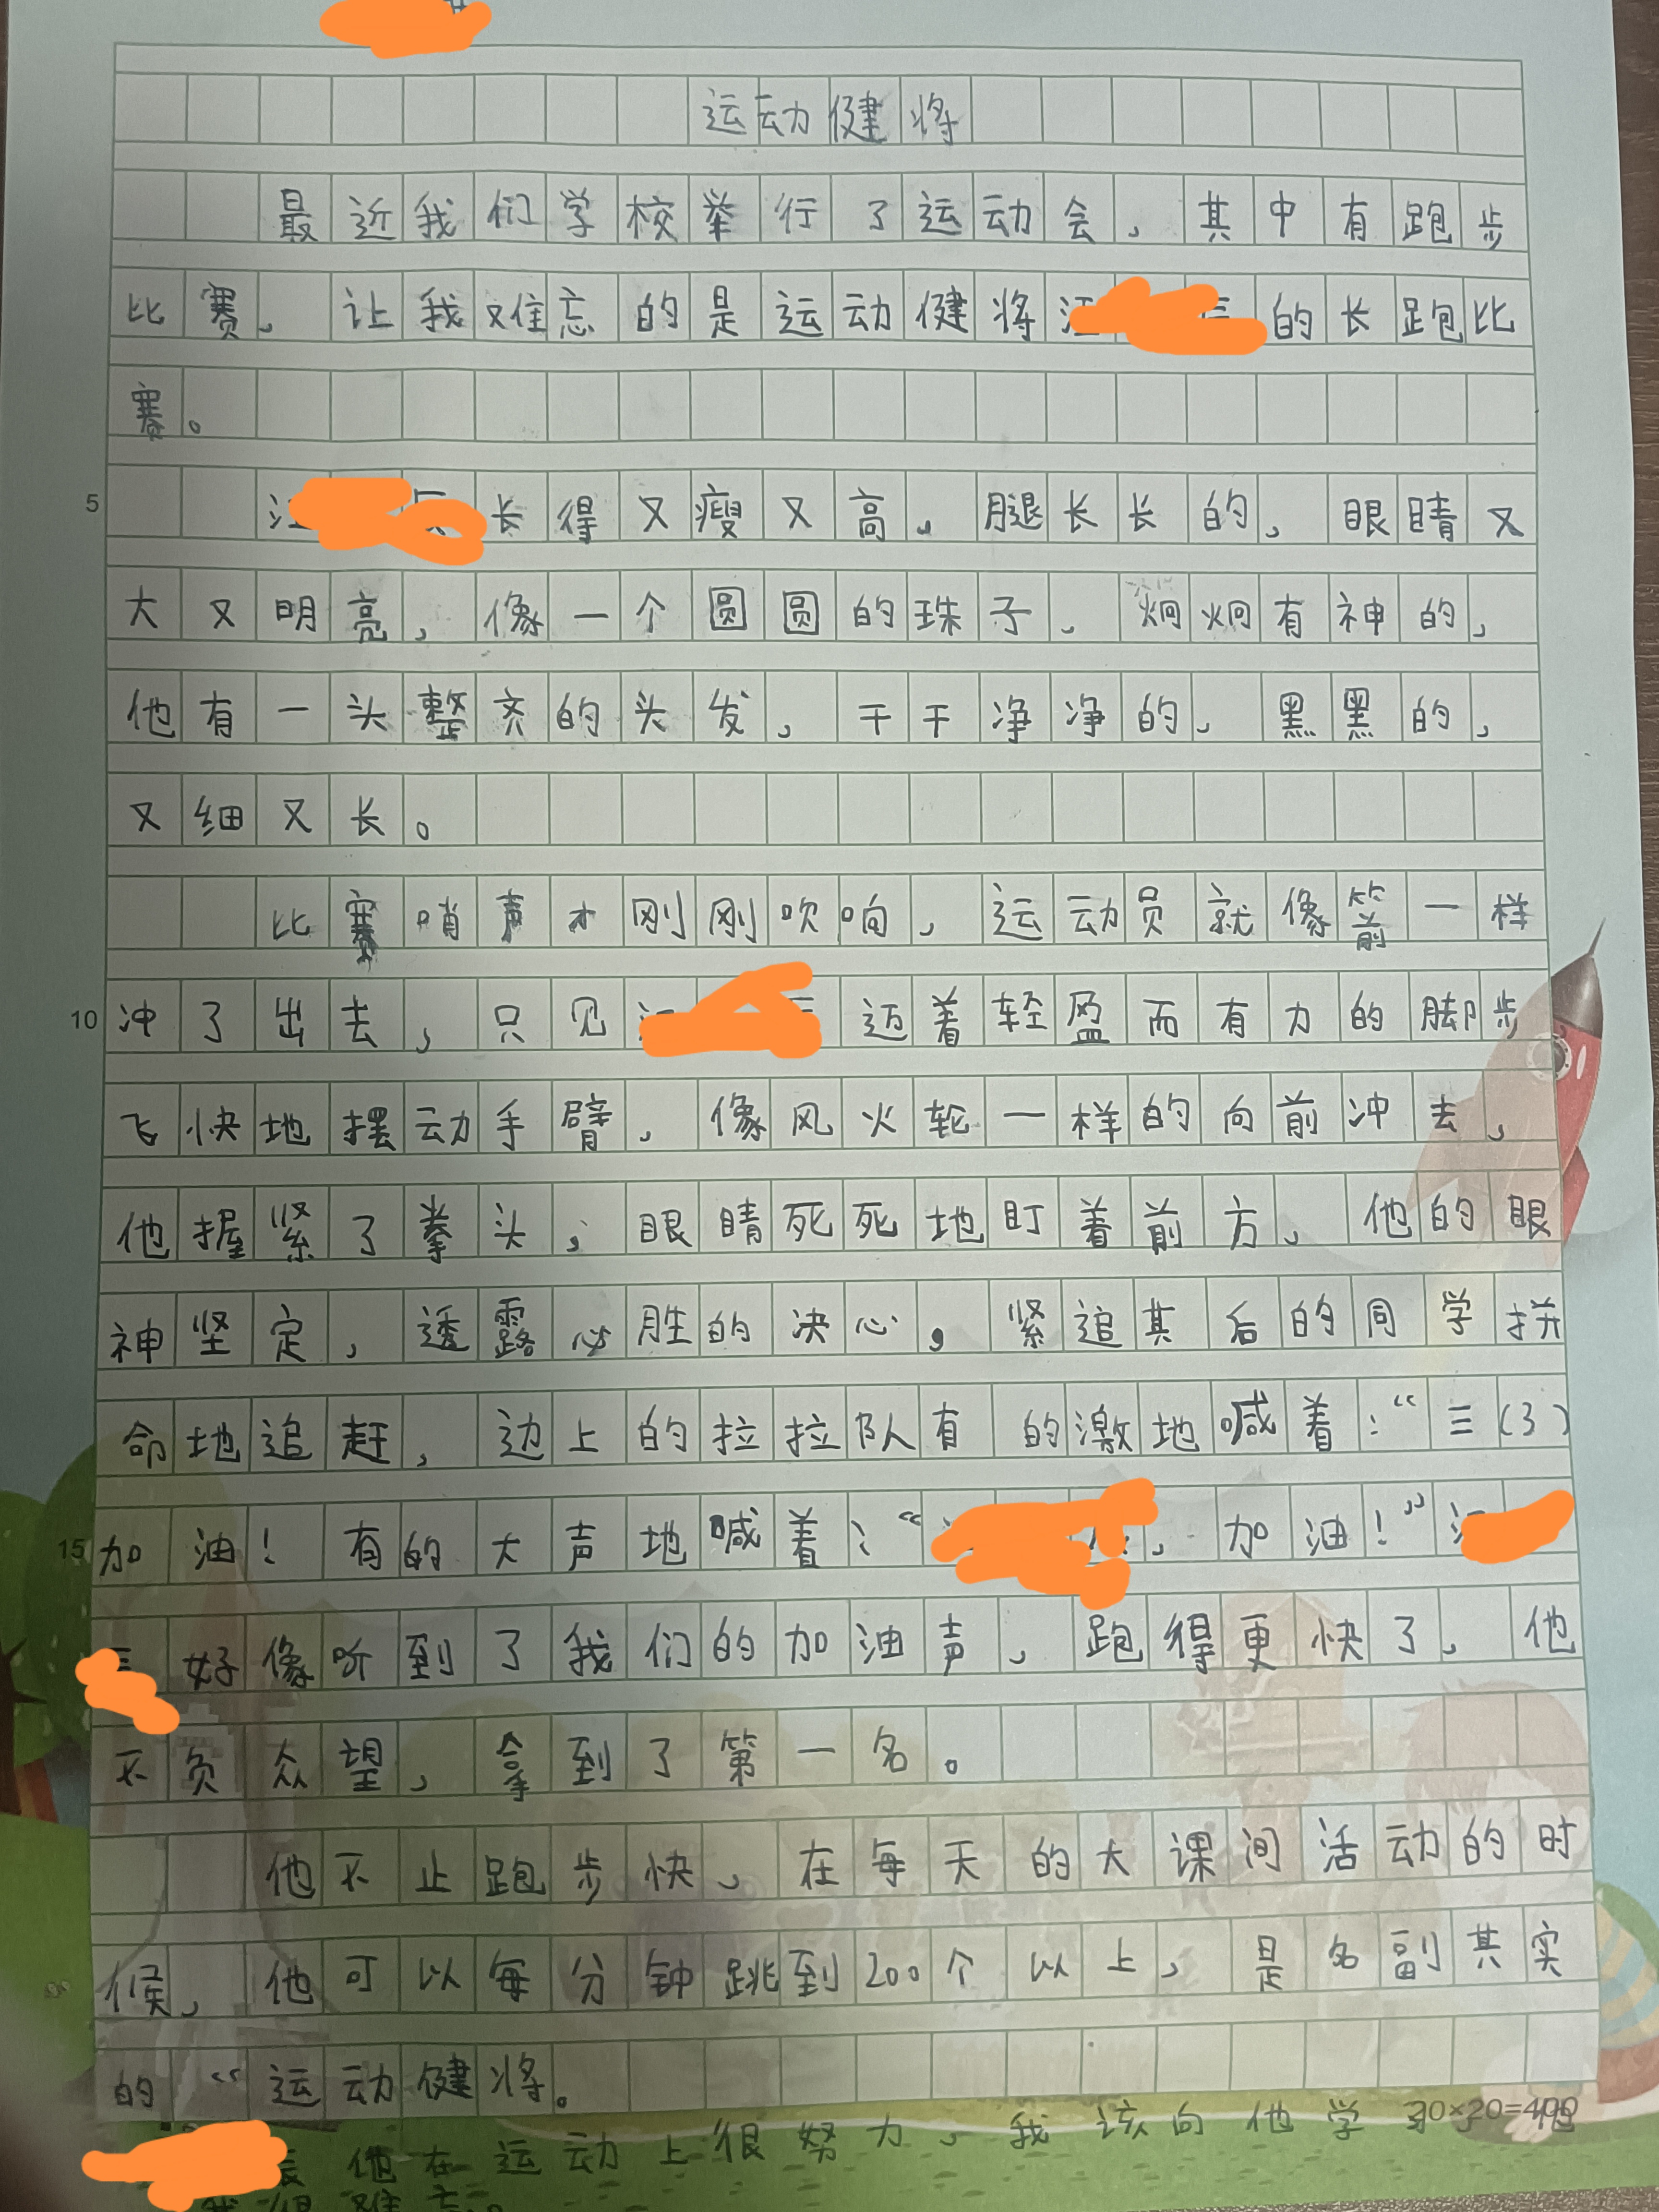 运动健将
最近我们学校举行了运动会，其中有跑步
比赛，让我难忘的是运动健将江的长跑比
赛。
5
江长得又瘦又高，腿长长的，眼睛又
大又明亮，像一个圆圆的珠子，炯炯有神的，
他有一头整齐的头发，干干净净的，黑黑的，
又细又长。
比赛哨声才刚刚吹响，运动员就像箭一样
10
冲了出去，只见迈着轻盈而有力的脚步
飞快地摆动手臂，像风火轮一样的向前冲去，
他握紧了拳头，眼睛死死地盯着前方，他的眼
神坚定，透露必胜的决心。紧追其后的同学拼
命地追赶，边上的拉拉队有的激地喊着：“三(3)
15
加油！有的大声地喊着：“，加油！”
好像听到了我们的加油声，跑得更快了，他
不负众望，拿到了第一名。
他不止跑步快，在每天的大课间活动的时
候，他可以每分钟跳到200个以上，是名副其实
的“运动健将。
20×20=400
他在运动上很努力，我该向他学习，他
我很难忘。